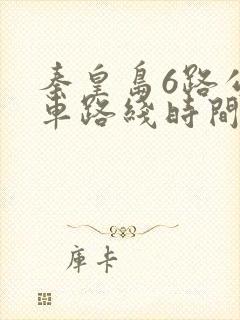 秦皇島6路公
車路綫時間
庫卡